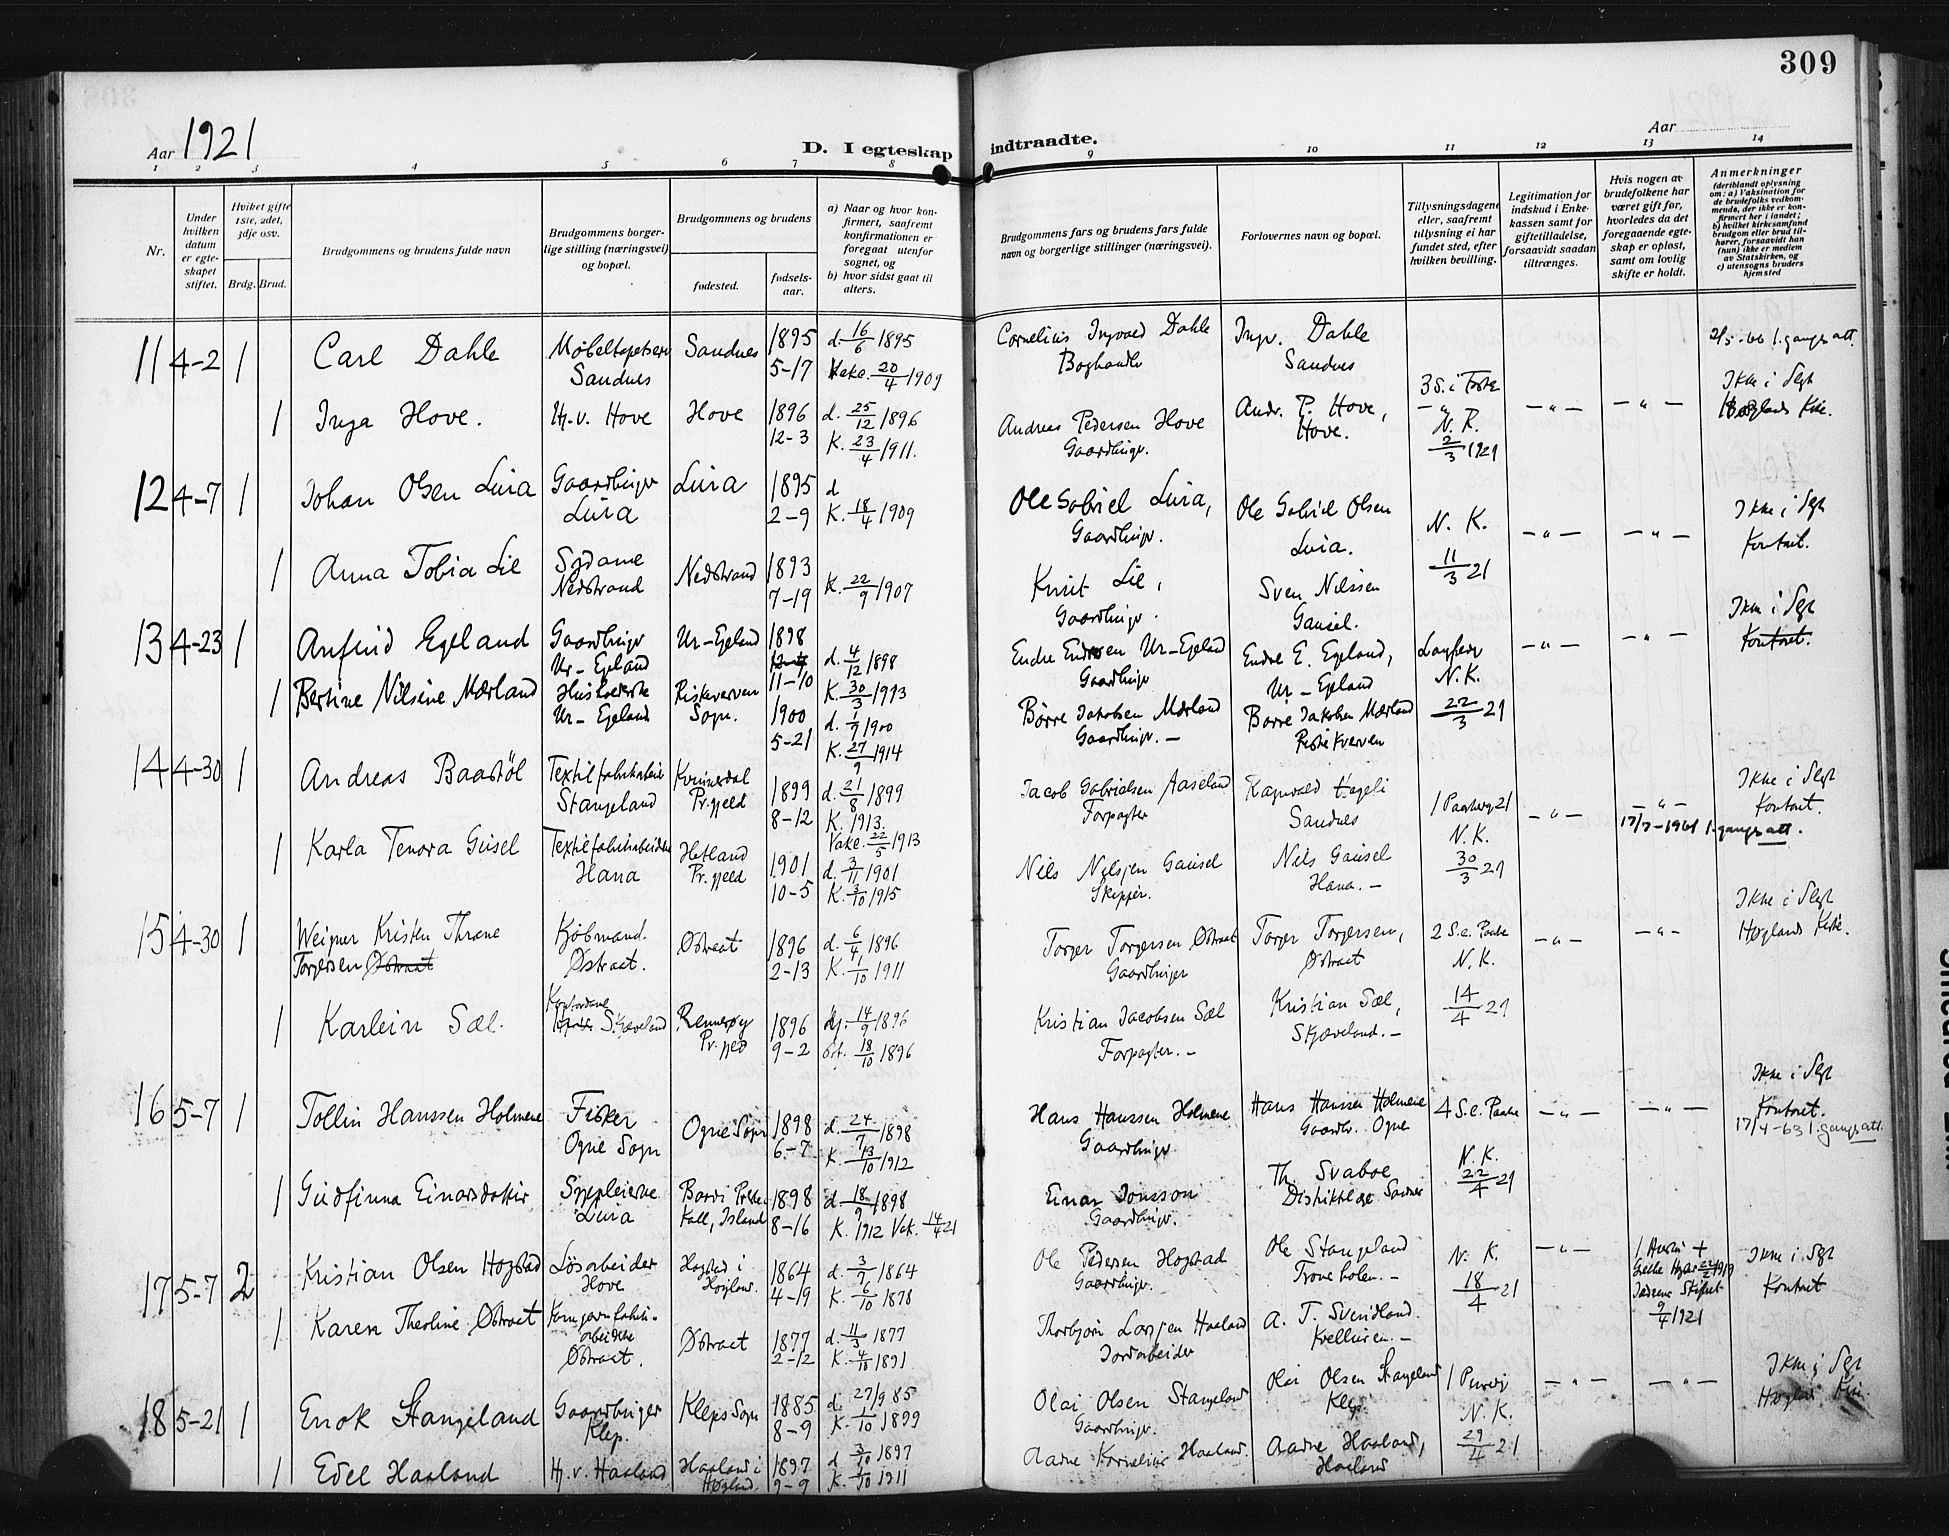 309
Aar 1921
D. I egteskap indtraadte.
Aar
1 2 3 4 5 6 7 8 9 10 11 12 13 14
Nr.
Under hvilken datum er egteskapet stiftet.
Hviket gifte 1ste, 2det, 3dje osv.
Brdg. Brud.
Brudgommens og brudens fulde navn
Brudgommens borgerlige stilling (næringsvei) og bopæl.
Brudgommens og brudens
fødested.
fødselsaar.
a) Naar og hvor konfirmert, saafremt konfirmationen er foregaat utenfor sognet, og
b) hvor sidst gaat til alters.
Brudgommens fars og brudens fars fulde navn og borgerlige stillinger (næringsvei).
Forlovernes navn og bopæl.
Tillysningsdagene eller, saafremt tillysning ei har fundet sted, efter hvilken bevilling.
Legitimation for indskud i Enkekassen samt for giftetilladelse, forsaavidt saadan tiltrænges.
Hvis nogen av brudefolkene har været gift før, hvorledes da det foregaaende egteskap er opløst, samt om lovlig skifte er holdt.
Anmerkninger (deriblandt oplysning om: a) Vaksination for de brudefolks vedkommende, der ikke er konfirmert her i landet; b) hvilket kirkesamfund brudgom eller brud tilhører, forsaavidt han (hun) ikke er medlem av Statskirken, og c) utensogns bruders hjemsted
11 4-2 1 Carl Dahle Sandnes Sandnes 1895 5-17 d. 16/6 1895 20/4 1909 Cornelius Ingvald Dahle Boghandler Ingv. Dahle Sandnes 2/5-66 1. gangs att.
1 Inga Hove. Hj. v. Hove Hove 1896 12-3 d. 25/12 1896 K. 23/4 1911. Andreas Pedersen Hove Gaardbruger. Andr. P. Hove, Hove. N. K. 2/3 1921 Ikke i Slgt
12 4-7 1 Johan Olsen Lura Gaardbruger Lura Lura 1895 2-9 d K. 18/4 1909 Ole Gabriel Lura, Gaardbruger. Ole Gabriel Olsen Lura. N. K. 11/3 21 Ikke i Slgt Kontoret.
1 Anna Tobia Lie Sydame Nedstrand Nedstrand 1893 7-19 K. 22/9 1907 Knut Lie, Gaardbruger. Sven Nilssen Gausel.
13 4-23 1 Anfind Egeland Gaardbruger Ur-Egeland Ur-Egeland 1898 11-10 d. 4/12 1898 K. 30/3 1913 Endre Endresen Ur-Egeland Gaardbruger Endre E. Egeland, Ur-Egeland N. K. 22/3 21 Ikke i Slgt Kontoret.
1 Bertine Nilsine Mærland Ur-Egeland Sogn. 1900 5-21 d. 1/7 1900 K. 27/9 1914 Børre Jakobsen Mærland Gaardbruger. Børre Jakobsen Mærland
14 4-30 1 Andreas Baastøl Textilfabrikarbeider Stangeland Kvinesdal Pr.gjeld 1899 8-12 d. 21/8 1899 K. 1913. Vakc. 22/5 1913 Jacob Gabrielsen Aaseland Forpagter Sandnes N. K. 30/3 21 17/7-1961 1. gangs att. Ikke i Slgt Kontoret.
1 Karla Tenora Gausel Textilfabrikarbeiderske Hana Hetland Pr.gjeld 1901 10-5 d. 3/11 1901 K. 3/10 1915 Nils Nilsjen Gausel Skipper. Nils Gausel Hana.
15 4-30 1 Kristen Thrane Torgersen Østraat Kjøbmand. Østraat. Østraat 1896 2-13 d. 6/4 1896 K. 1/10 1911 Torger Torgersen Østraat Gaardbruger Torger Torgersen, Østraat N. K. 14/4 21 Ikke i Slgt Høylands Kirke.
1 Karlein Sæl. Skjæveland Rennesøy Pr.gjeld 1896 9-2 14/9 1896 18/10 1896 Kristian Jacobsen Sæl Forpagter. Kristian Sæl, Skjæveland.
16 5-7 1 Tollin Hanssen Holmene Fisker Ogne Sogn Ogne Sogn 1898 6-7 d. 24/7 1898 K. 13/10 1912 Hans Hanssen Holmene Gaardbruger Hans Hanssen Holmene Gaardbr. Ogne N. K. 22/4 21 Ikke i Slgt Kontoret. 17/4-63 1. gangs att.
1 Gudfinna Einarsdottir Sypleierske Lura Island 1898 8-16 d. 18/9 1898 K. 1912 Vak. 14/4 21 Einar Jonsson Gaardbruger. Th. Svaboe
17 5-7 2 Kristian Olsen Hogstad Løsarbeider Hove Hogstad i Høyland. 1864 4-19 d. 3/7 1864 K. 6/10 1878 Ole Pedersen Hogstad Gaardbruger. Ole Stangeland Troneholen. N. K. 18/4 21 9/4 1921 Ikke i Slgt Kontoret
1 Karen Theoline Østraat Østraat. Østraat 1877 2-12 d. 11/3 1877 K. 4/10 1891. Thorbjørn Larsen Haaland Jordarbeider A. T. Svendland.
18 5-21 1 Enok Stangeland Gaardbruger Klep. Kleps Sogn 1885 8-9 d. 27/9 85 K. 1/10 1899 Olai Olsen Stangeland Gaardbruger. Olai Olsen Stangeland Klep. N. K. 29/4 21 Ikke i Slgt
1 Edel Haaland Hj. v. Haaland Haaland i Høyland. 1897 9-9 d 3/10 1897 K. 1/10 1911 Aadne Kornelius Haaland. Aadne Haaland, Haaland